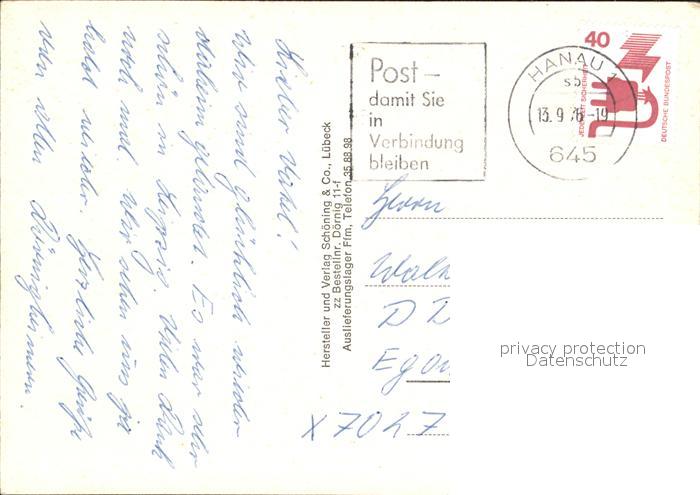 Lieber Väkel!
Wir sind glücklich wieder
daheim gelandet. Es war sehr
schön in Leipzig. Vielen Dank
noch mal. Wir sehen uns ja
bald wieder. Herzliche Grüße
von allen Dörnigheimern.
Hersteller und Verlag Schöning & Co., Lübeck
zz Bestellnr. Dörnig 11-f
Auslieferungslager Ffm, Telefon 35 88 98
Post –
damit Sie
in
Verbindung
bleiben
HANAU 1
sb
13.9.76-19
645
40
JEDERZEIT SICHERHEIT
DEUTSCHE BUNDESPOST
Herrn
Walt
D D
Egon
X 7027
privacy protection
Datenschutz